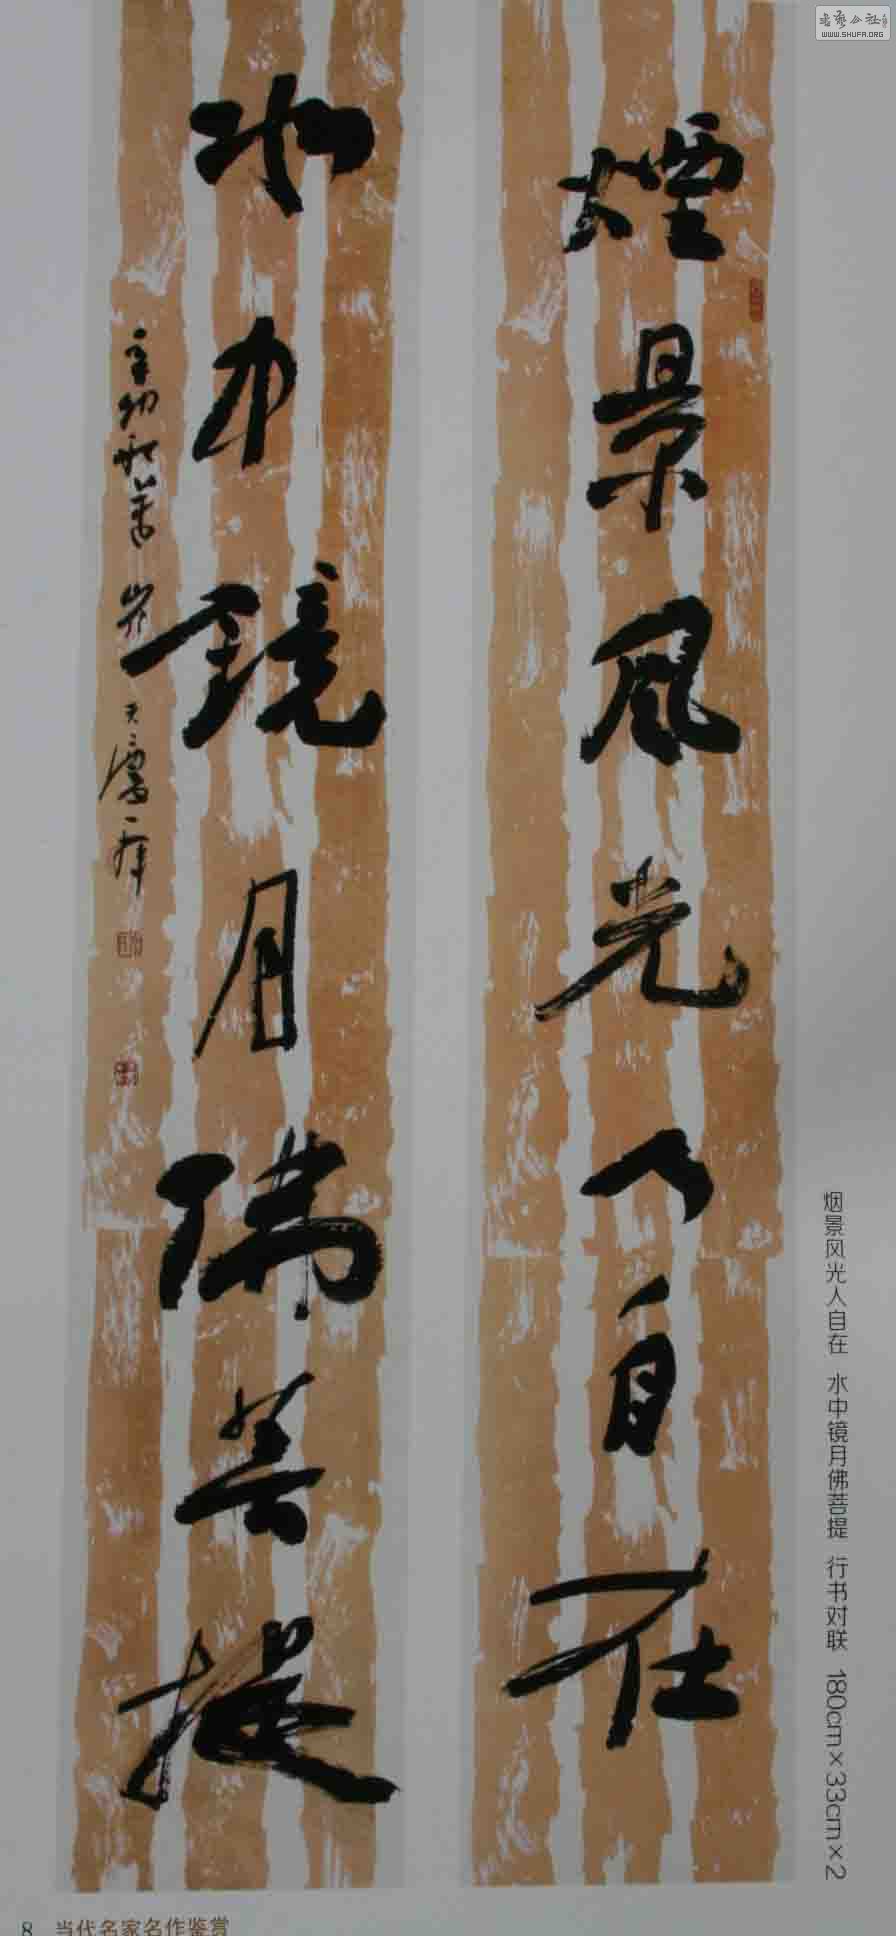 煙景風光人自在
水中鏡月佛菩提
辛卯秋
烟景风光人自在 水中镜月佛菩提 行书对联 180cm×33cm×2
8 当代名家名作鉴赏
书艺公社
WWW.SHUFA.ORG